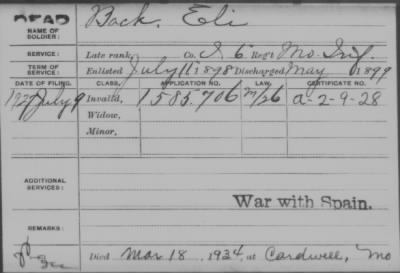 DEAD
NAME OF SOLDIER: Back, Eli
SERVICE: Late rank, Co. I 6 Reg't Mo. Inf.
TERM OF SERVICE: Enlisted July 11 1898 Discharged May 1899
DATE OF FILING. CLASS. APPLICATION NO. LAW. CERTIFICATE NO.
1927 July 9 Invalid, 1585706 M/26 A-2-9-28
Widow,
Minor,
ADDITIONAL SERVICES:
War with Spain.
REMARKS:
Died Mar 18, 1934, at Cardwell, Mo